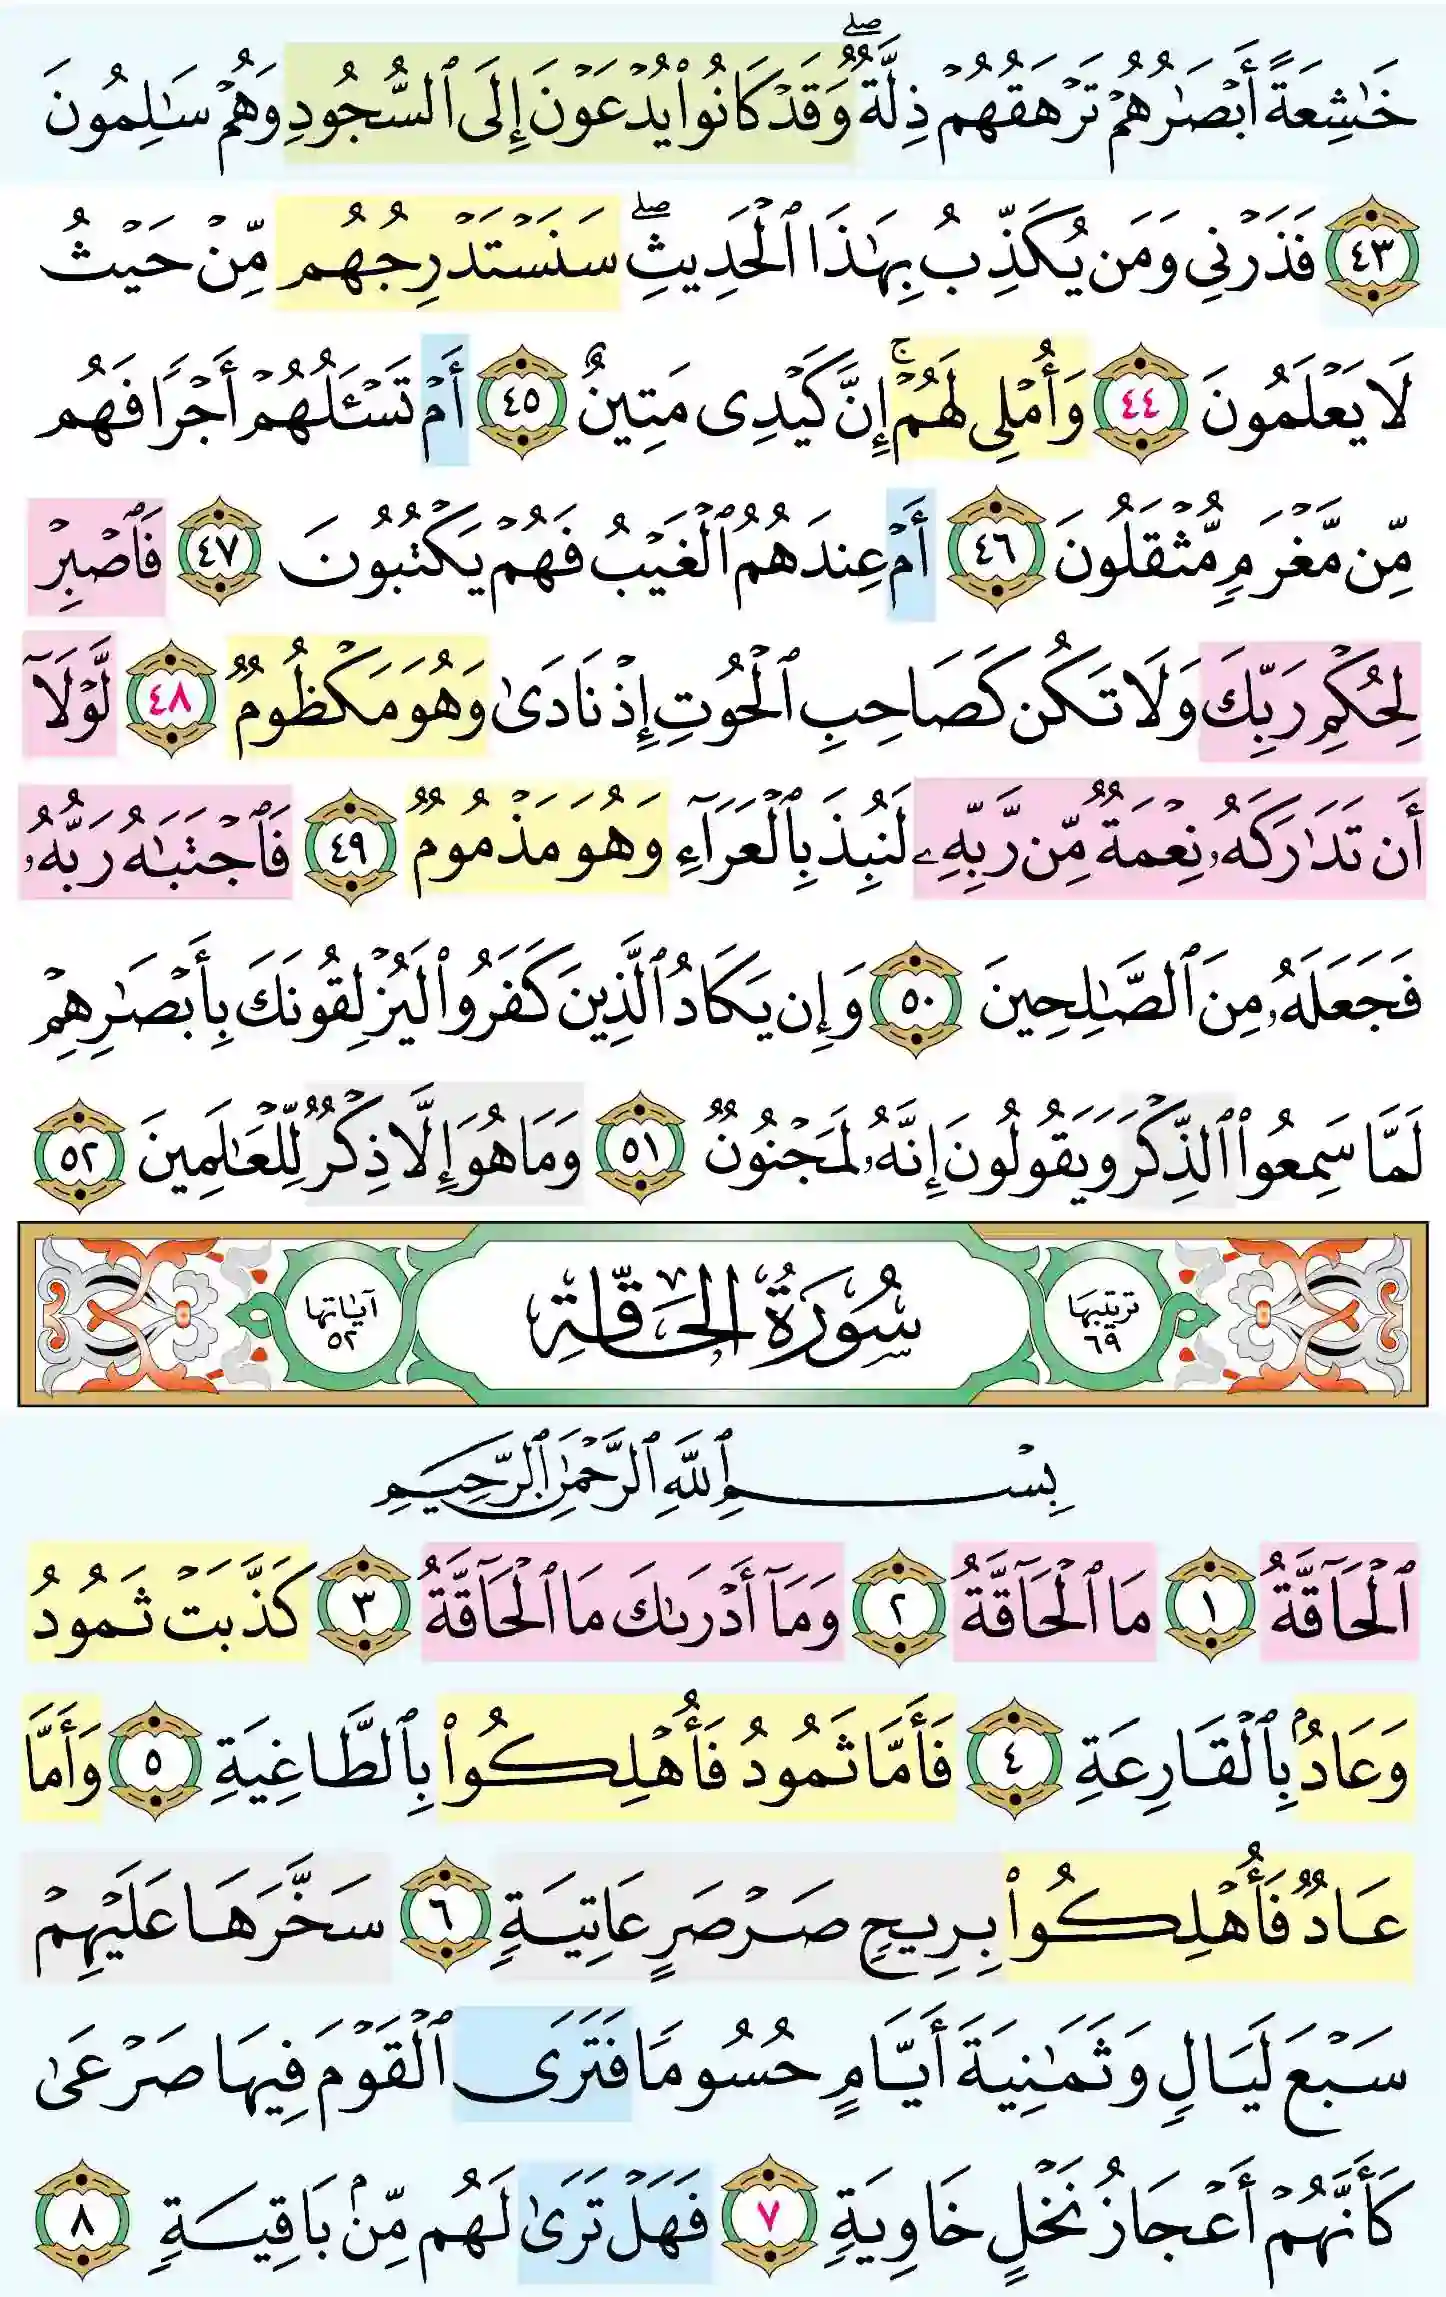 خَٰشِعَةً أَبۡصَٰرُهُمۡ تَرۡهَقُهُمۡ ذِلَّةٞۖ وَقَدۡ كَانُواْ يُدۡعَوۡنَ إِلَى ٱلسُّجُودِ وَهُمۡ سَٰلِمُونَ
٤٣ فَذَرۡنِي وَمَن يُكَذِّبُ بِهَٰذَا ٱلۡحَدِيثِۖ سَنَسۡتَدۡرِجُهُم مِّنۡ حَيۡثُ
لَا يَعۡلَمُونَ ٤٤ وَأُمۡلِي لَهُمۡۚ إِنَّ كَيۡدِي مَتِينٌ ٤٥ أَمۡ تَسۡـَٔلُهُمۡ أَجۡرٗا فَهُم
مِّن مَّغۡرَمٖ مُّثۡقَلُونَ ٤٦ أَمۡ عِندَهُمُ ٱلۡغَيۡبُ فَهُمۡ يَكۡتُبُونَ ٤٧ فَٱصۡبِرۡ
لِحُكۡمِ رَبِّكَ وَلَا تَكُن كَصَاحِبِ ٱلۡحُوتِ إِذۡ نَادَىٰ وَهُوَ مَكۡظُومٞ ٤٨ لَّوۡلَآ
أَن تَدَٰرَكَهُۥ نِعۡمَةٞ مِّن رَّبِّهِۦ لَنُبِذَ بِٱلۡعَرَآءِ وَهُوَ مَذۡمُومٞ ٤٩ فَٱجۡتَبَٰهُ رَبُّهُۥ
فَجَعَلَهُۥ مِنَ ٱلصَّٰلِحِينَ ٥٠ وَإِن يَكَادُ ٱلَّذِينَ كَفَرُواْ لَيُزۡلِقُونَكَ بِأَبۡصَٰرِهِمۡ
لَمَّا سَمِعُواْ ٱلذِّكۡرَ وَيَقُولُونَ إِنَّهُۥ لَمَجۡنُونٞ ٥١ وَمَا هُوَ إِلَّا ذِكۡرٞ لِّلۡعَٰلَمِينَ ٥٢
ترتيبها ٦٩ سُورَةُ الحَاقَّةِ آياتها ٥٢
بِسۡمِ ٱللَّهِ ٱلرَّحۡمَٰنِ ٱلرَّحِيمِ
ٱلۡحَآقَّةُ ١ مَا ٱلۡحَآقَّةُ ٢ وَمَآ أَدۡرَىٰكَ مَا ٱلۡحَآقَّةُ ٣ كَذَّبَتۡ ثَمُودُ
وَعَادُۢ بِٱلۡقَارِعَةِ ٤ فَأَمَّا ثَمُودُ فَأُهۡلِكُواْ بِٱلطَّاغِيَةِ ٥ وَأَمَّا
عَادٞ فَأُهۡلِكُواْ بِرِيحٖ صَرۡصَرٍ عَاتِيَةٖ ٦ سَخَّرَهَا عَلَيۡهِمۡ
سَبۡعَ لَيَالٖ وَثَمَٰنِيَةَ أَيَّامٍ حُسُومٗا فَتَرَى ٱلۡقَوۡمَ فِيهَا صَرۡعَىٰ
كَأَنَّهُمۡ أَعۡجَازُ نَخۡلٍ خَاوِيَةٖ ٧ فَهَلۡ تَرَىٰ لَهُم مِّنۢ بَاقِيَةٖ ٨